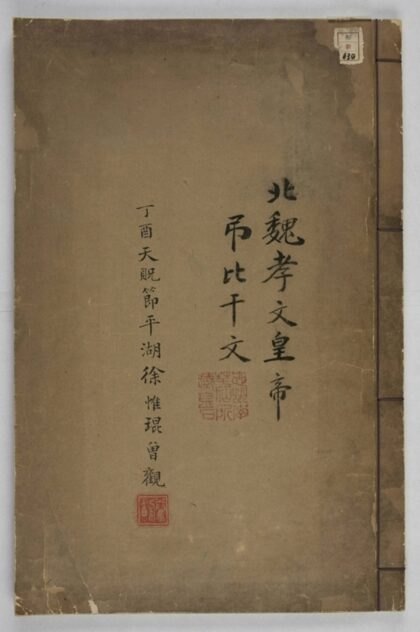 北魏孝文皇帝
弔比干文
丁酉天貺節平湖徐惟琨曾觀